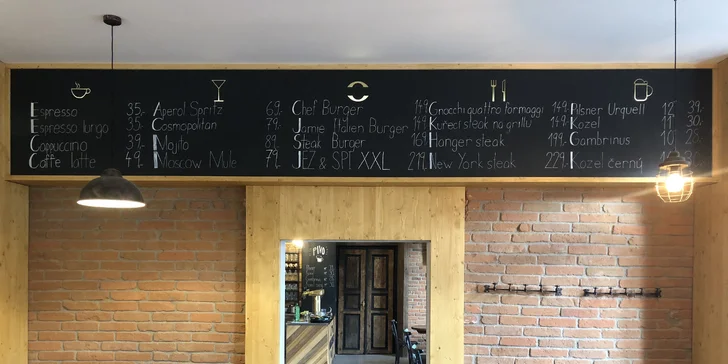 Espresso 35,-
Espresso lungo 35,-
Cappuccino 39,-
Caffe latte 49,-
Aperol Spritz 69,-
Cosmopolitan 79,-
Mojito 89,-
Moscow Mule 79,-
Chef Burger 149,-
Jamie Italien Burger 149,-
Steak Burger 169,-
JEZ & SPI XXL 219,-
Gnocchi quattro formaggi
Kuřecí steak na grilu
Hanger steak 199,-
New York steak 229,-
Pilsner Urquell 12° 39,-
Kozel 11° 30,-
Gambrinus 10°
Kozel černý
PIVO